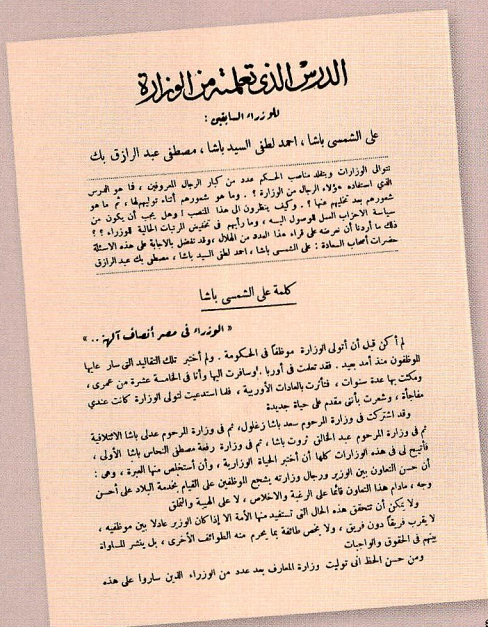 الدرس الذى تعلمته من الوزارة
للوزراء السابقين :
على الشمسى باشا ، احمد لطفى السيد باشا ، مصطفى عبد الرازق بك
تتوالى الوزارات ويتقلد مناصب الحكم عدد من كبار الرجال المعروفين ، فما هو الدرس
الذي استفاده هؤلاء الرجال من الوزارة ؟ . وما هو شعورهم أثناء توليهم لها ، ثم ما هو
شعورهم بعد تخليهم عنها ؟ . وكيف ينظرون الى هذا المنصب ! وهل يجب أن يكون من
سياسة الاحزاب السل للوصول اليه ـ وما رأيهم فى تخفيض المرتبات الحالية للوزراء ؟ ؟
ذلك ما أردنا أن نعرضه على قراء هذا العدد من الهلال ، وقد تفضل بالاجابة على هذه الاسئلة
حضرات أصحاب السعادة : على الشمسى باشا ، احمد لطفى السيد باشا ، مصطفى بك عبد الرازق
كلمة على الشمسى باشا
« الوزراء فى مصر أنصاف آلهة .. »
لم أكن قبل أن أتولى الوزارة موظفاً فى الحكومة . ولم أختبر تلك التقاليد التى سار عليها
الموظفون منذ أمد بعيد . فقد تعلمت فى أوربا . وسافرت اليها وأنا فى الخامسة عشرة من عمرى ،
ومكثت بها عدة سنوات ، فتأثرت بالعادات الأوربية ، فلما استدعيت لتولى الوزارة كانت عندى
مفاجأة ، وشعرت بأننى مقدم على حياة جديدة
وقد اشتركت فى وزارة المرحوم سعد باشا زغلول ، ثم فى وزارة المرحوم عدلى باشا الائتلافية
ثم فى وزارة المرحوم عبد الخالق ثروت باشا ، ثم فى وزارة رفعة مصطفى النحاس باشا الأولى ،
فأتيح لى فى هذه الوزارات كلها أن أختبر الحياة الوزارية ، وأن أستخلص منها العبرة ، وهى :
أن حسن التعاون بين الوزير ورجال وزارته يشجع الموظفين على القيام بخدمة البلاد على أحسن
وجه ، مادام هذا التعاون قائماً على الرغبة والاخلاص ، لا على الهيبة والتملق
ولا يمكن أن تتحقق هذه الحال التى تستفيد منها الأمة الا إذا كان الوزير عادلا بين موظفيه ،
لا يقرب فريقاً دون فريق ، ولا يخص طائفة بما يحرم منه الطوائف الأخرى ، بل ينشر المساواة
بينهم فى الحقوق والواجبات
ومن حسن الحظ انى توليت وزارة المعارف بعد عدد من الوزراء الذين ساروا على هذه